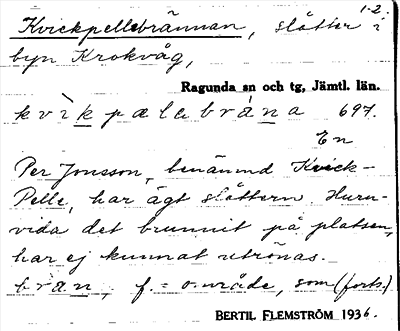 1-2.
Kvickpellebrännan, slåtter i
byn Krokvåg,
Ragunda sn och tg, Jämtl. län.
kvìkpælebrána 697.
En
Per Jonsson, benämnd Kvick-
Pelle, har ägt slåttern. Huru-
vida det brunnit på platsen,
har ej kunnat utrönas.
bràn, f. = område, som (forts.)
BERTIL FLEMSTRÖM 1936.